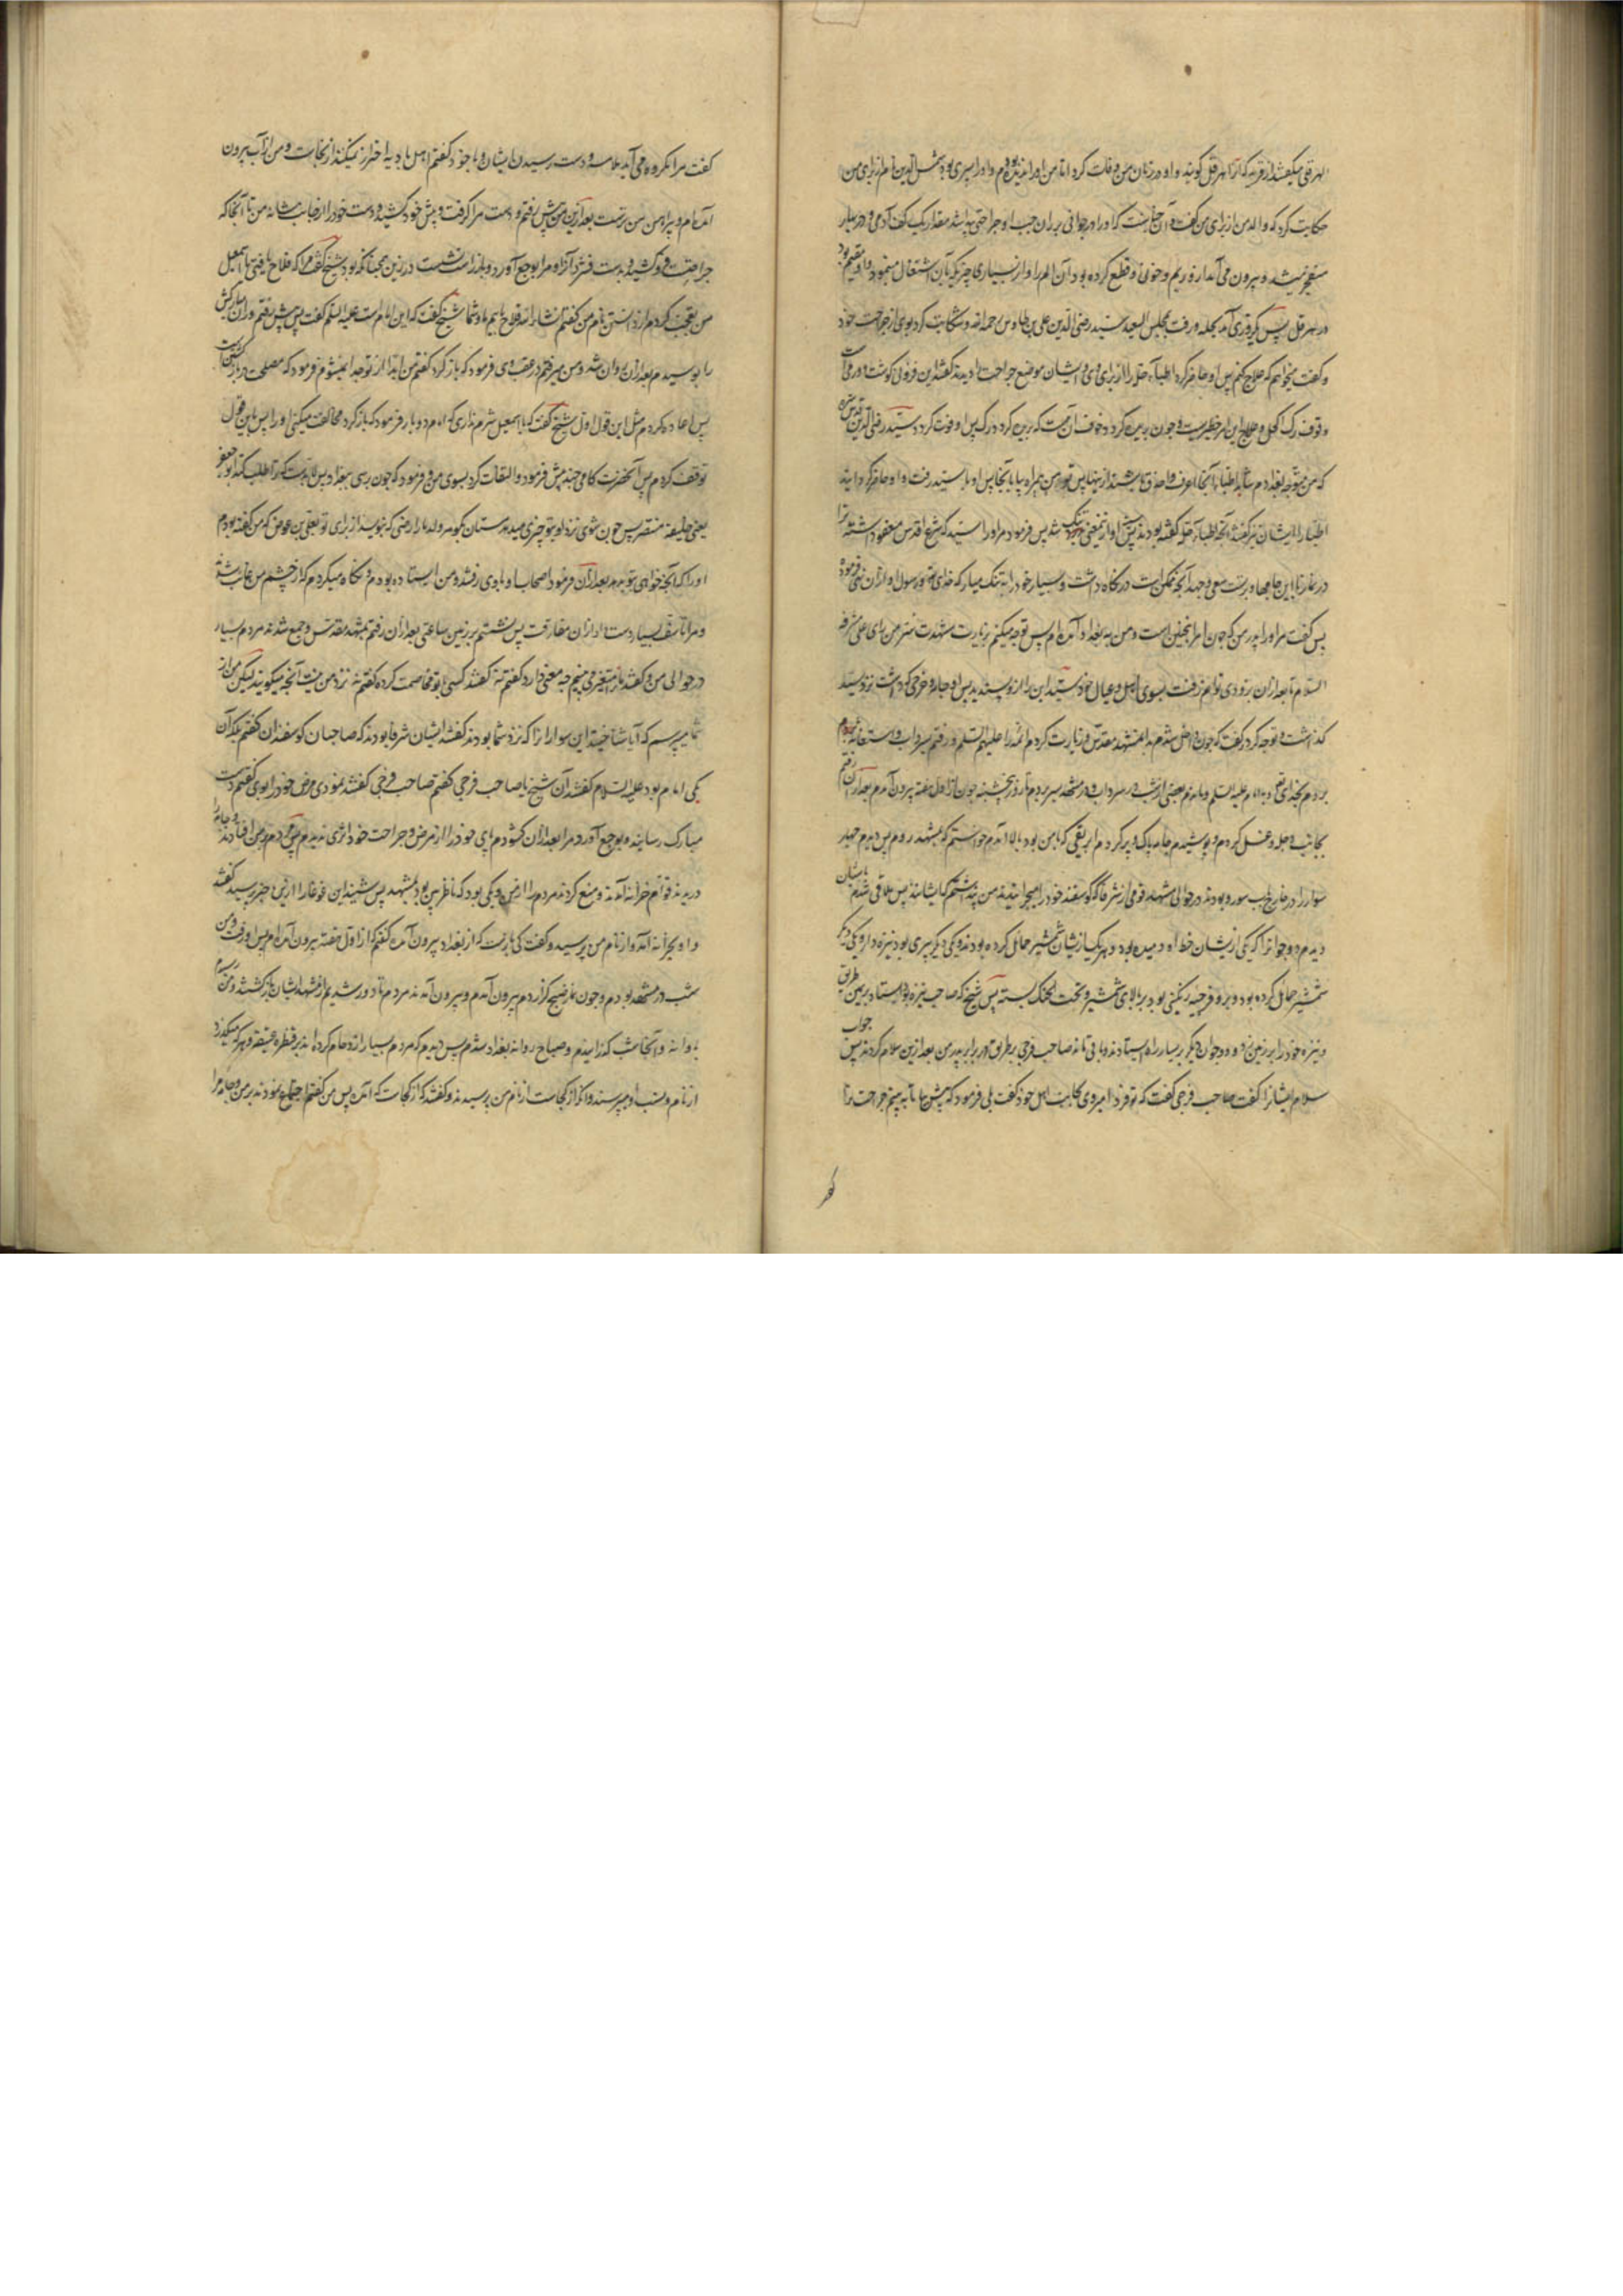 هرقلی میگفتند از قریه که آنرا هرقل گویند و او در زمان من وفات کرد اما من او را ندیده بودم و او را پسری بود شمس الدین نام از برای من
حکایت کرد که والد من از برای من گفت که او را در جوانی بر ران چپ او جراحتی پیدا شد مقدار یک کف آدمی و در بهار
منفجر میشد و بیرون می آمد از و ریم و خونی و قطع کرده بود آن الم او را از بسیاری چیز که بآن اشتغال مینمود و او مقیم بود
در هرقل پس روزی آمد بحله و رفت بمجلس السعید سید رضی الدین علی بن طاوس رحمه الله و شکایت کرد بوی از جراحت خود
و گفت میخواهم که علاج کنم پس او حاضر کرد اطباء حله را از برای وی و ایشان موضع جراحت او دیدند گفتند این فزونی گوشت
رگ اکحل و علاج این امر خطیریست و چون بریده گردد خوف آن هست که بریده گردد رگ پس او فوت گردد سید رضی الدین
که من متوجه بغدادم شاید اطباء آنجا اعرف و احذق باشند از اینها پس تو همراه من بیا تا بآنجا پس او با سید رفت و او حاضر گردانید
اطبا را ایشان نیز گفتند آنچه اطباء حله گفته بودند پس او ازین معنی دلتنگ شد پس فرمود مر او را سید که شرع اقدس معفو داشته ترا
در نماز با این جامها و بر تست سعی و جهد آنچه ممکن است در نگاه داشت و بسیار خود را به تنگ میار که خدای تعالی و رسول او از آن نهی فرموده
پس گفت مر او را پدر من که چون امر اینچنین است و من به بغداد آمده ام پس توجه میکنم بزیارت مشهد سر من رای علی مشرفه
السلام بعد از آن بزودی توانم رفت بسوی اهل و عیال خود سید این را از و پسندید پس او جامه و خرجی که داشت نزد سید
گذاشت و توجه کرد و گفت که چون داخل شدم بدان مشهد مقدس و زیارت کردم ائمه را علیهم السلم و رفتم بسرداب و استغاثه نمودم
بخدای تعالی و به امام علیه السلم و ماندم بعضی از شب در سرداب و در مشهد بسر بردم تا روز پنجشنبه
بجانب دجله و غسل کردم و پوشیدم جامه پاک و پر کردم ابریقی که با من بود و بالا آمدم خواستم که بمشهد روم پس دیدم چهار
سوار را در خارج باب سور و بودند در حوالی مشهد قومی از شرفا که گوسفند خود را میچرانیدند من پنداشتم که ایشانند پس ملاقی شدم
دیدم دو جوان را که یکی از ایشان خط او دمیده بود و هر یک از ایشان شمشیر حمایل کرده بودند و یکی دیگر پیری بود نیزه دار و یکی دیگر
شمشیر حمایل کرده بود و بر و فرجیه رنگینی بود بر بالای شمشیر و تحت الحنک بسته پس شیخ که صاحب نیزه بود ایستاد بر یمین طریق
و نیزه خود را بر زمین زد و دو جوان دیگر بر یسار راه ایستادند و باقی ماند صاحب فرجی بر طریق در برابر پدر من بعد ازین سلام کردند پس جواب
سلام ایشان را گفت صاحب فرجی گفت که تو فردا میروی بجانب اهل خود گفت بلی فرمود که پیش بیا تا به بینم جراحت ترا
گفت مرا مکروه می آمد ملامسه و دست رسیدن ایشان و با خود گفتم اهل بادیه احتراز نمیکنند از نجاست و من از آب بیرون
آمده ام و پیراهن من ترست بعد ازین من پیش رفتم و دست مرا گرفت و پیش خود کشید و دست خود را از جانب شانه من تا آنجا که
جراحتست فرو کشید و بدست فشرد آنرا و مرا بوجع آورد و باز راست نشست در زین همچنانکه بود شیخ گفت مرا که فلاح یافتی یا اسمعیل
من تعجب کردم از دانستن نام من گفتم انشا الله فلاح یابیم ما و شما شیخ گفت که این امام است علیه السلم گفت پس پیش رفتم و ران مبارکش
را بوسیدم بعد از آن روان شد و من میرفتم در عقب وی فرمود که باز گرد گفتم من ابدا از تو جدا نمیشوم فرمود که مصلحت در باز گشتن است
پس اعاده کردم مثل این قول اول شیخ گفت که یا اسمعیل شرم نداری که امام دو بار فرمود که باز گرد مخالفت میکنی او را پس باین قول
توقف کردم پس آنحضرت گامی چند پیش فرمود و التفات کرد بسوی من و فرمود که چون رسی ببغداد پس لابدست که ترا طلب کند ابو جعفر
یعنی خلیفه منتصر پس چون شوی نزد او و بتو چیزی میدهد مستان و بگو مر ولد ما را رضی که بنویسد از برای تو بعلی بن عوض که من گفته بودم
او را که آنچه خواهی بتو بدهد بعد از آن فرمود اصحاب او با وی رفتند و من ایستاده بودم و نگاه میکردم که از چشم من غایب شد
و مرا تأسف بسیار دست داد از آن مفارقت پس نشستم بر زمین ساعتی بعد از آن رفتم بمشهد مقدس و جمع شدند مردم بسیار
در حوالی من و گفتند ترا متغیر می بینیم چه معنی دارد گفتم نه گفتند کسی با تو مخاصمت کرده گفتم نه نزد من نیست آنچه میگویید لیکن من از
شما میپرسم که آیا شناختید این سواران را که نزد شما بودند گفتند ایشان شرفا بودند که صاحبان گوسفندان گفتم بلکه آن
یکی امام بود علیه السلام گفتند آن شیخ یا صاحب فرجی گفتم صاحب فرجی گفتند نمودی مرض خود را بوی گفتم دست
مبارک رسانید و بوجع آورد مرا بعد از آن گشودم پای خود را از مرض و جراحت خود اثری ندیدم پس مردم بر من افتادند و جامه
دریدند قوام خزانه آمدند و منع کردند مردم را از من و یکی بود که ناظر بین بود بمشهد پس شنید این غوغا را ازین خبر پرسید گفتند
و او بخزانه آمد و از نام من پرسید و گفت کی بازست که از بغداد بیرون آمده گفتم که از اول هفته بیرون آمده ام پس او رفت و من
شب در مشهد بودم و چون نماز صبح گزاردم بیرون آمدم و بیرون آمدند مردم تا دور شدیم از مشهد ایشان بازگشتند و من رسیدم
باوانه و آنجا شب گذرانیدم و صباح روانه بغداد شدم پس دیدم که مردم بسیار ازدحام کرده اند بر قنطره عتیقه و هر که میگذرد
از نام و نسب او میپرسند و آنکه از کجاست از نام من پرسیدند و گفتند که از کجاست که آمده پس من گفتم اجتماع نمودند بر من و جامه مرا